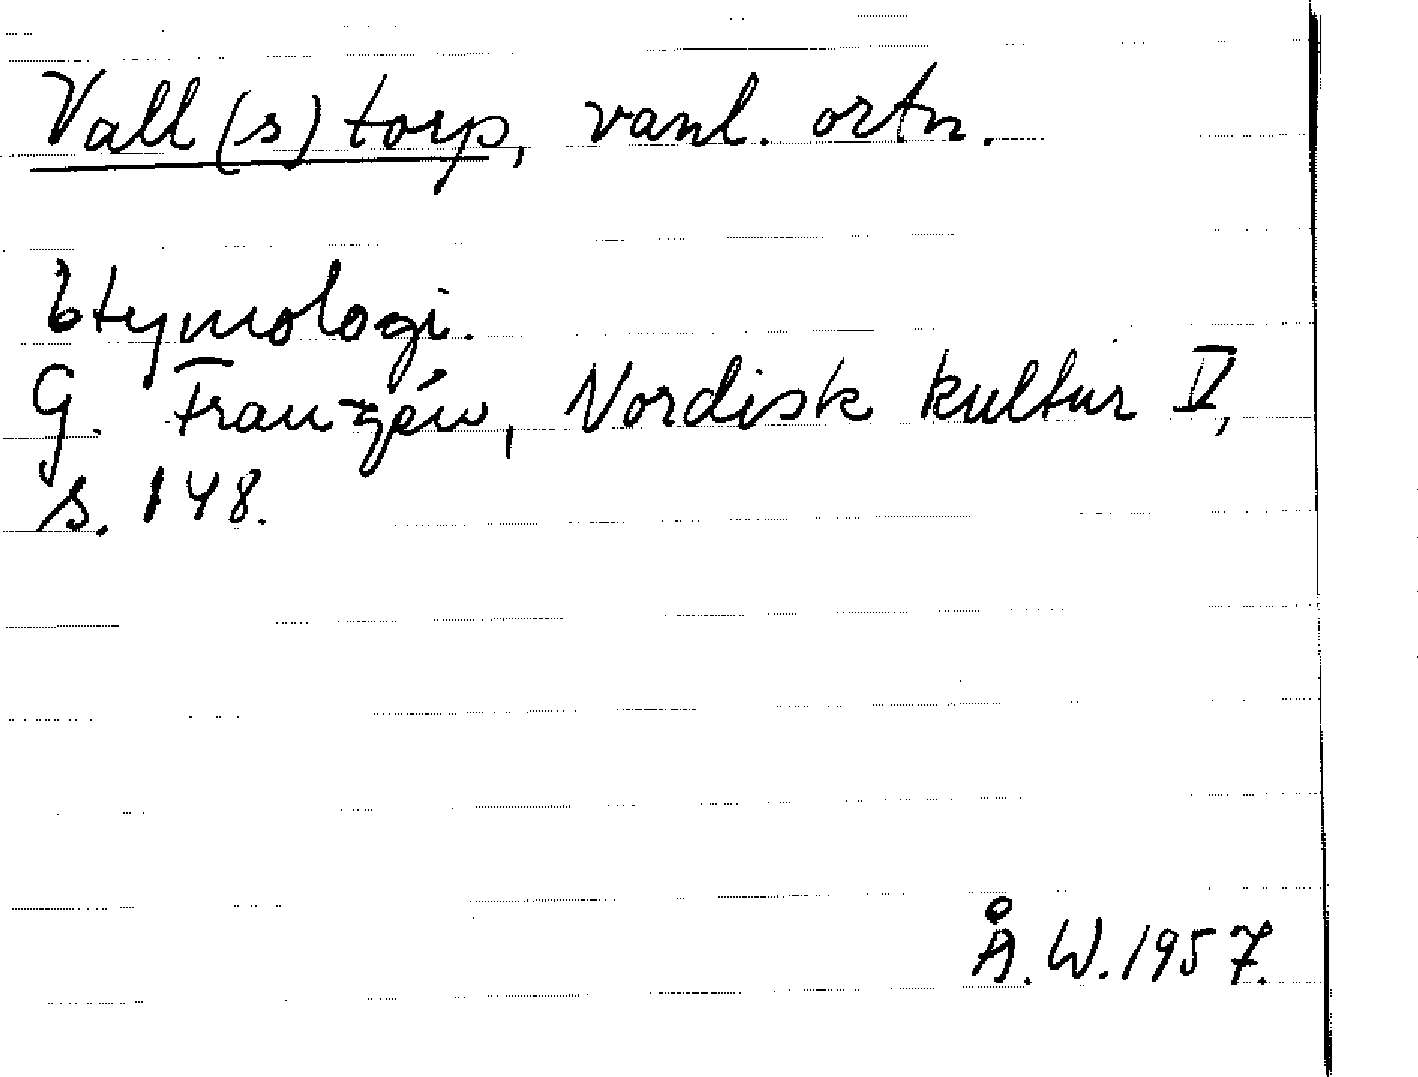 Vall(s)torp, vanl. ortn.
Etymologi.
G. Franzén, Nordisk kultur V,
s. 148.
Å. W. 1957.